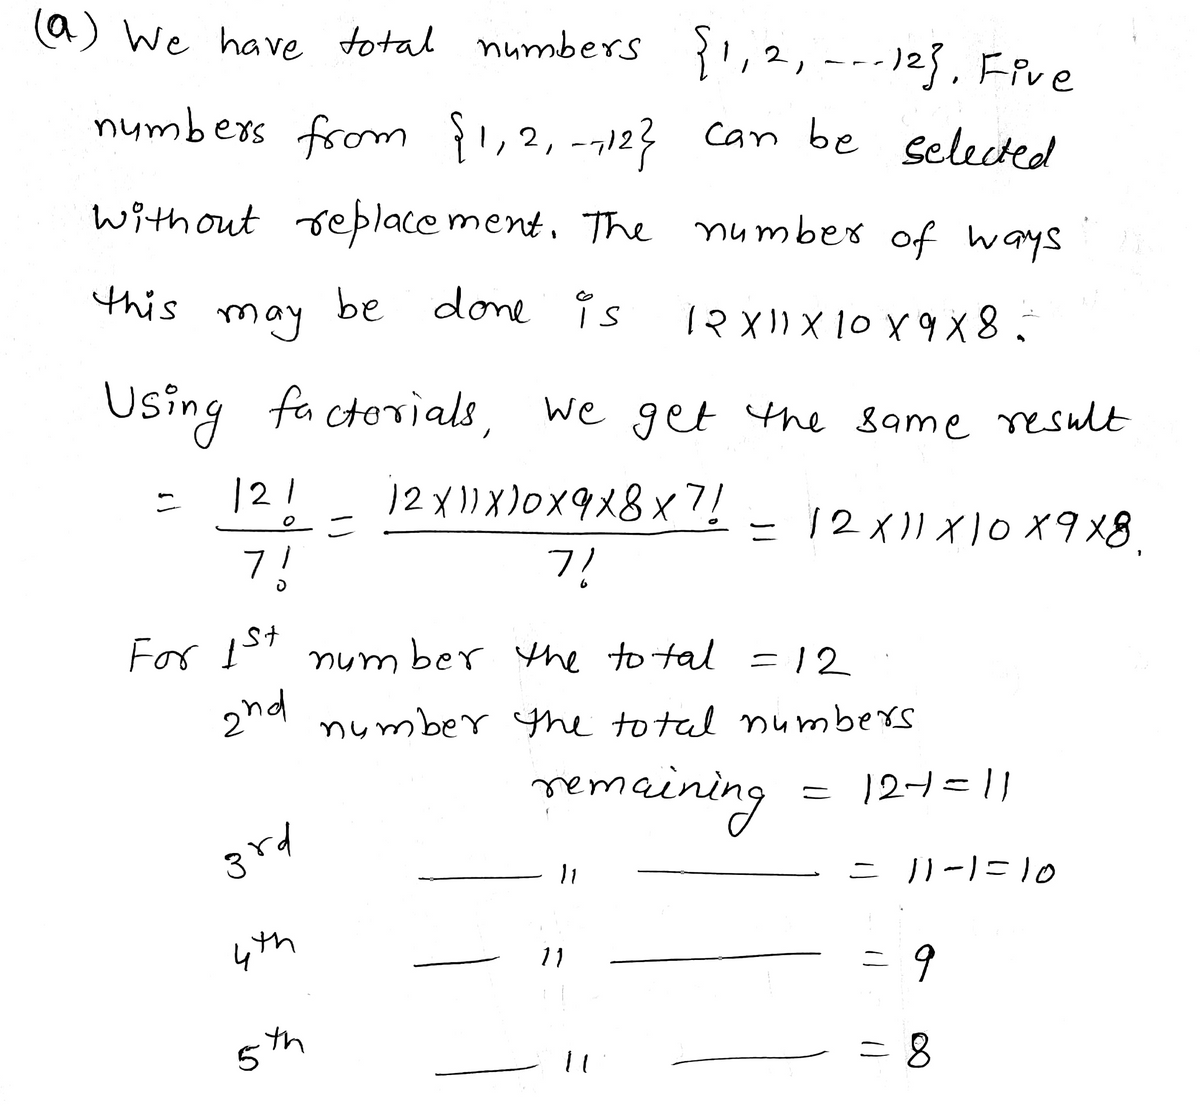 (a) We have total numbers {1, 2, ---12}. Five
numbers from {1, 2, --,12} can be selected
without replacement. The number of ways
this may be done is 12 X 11 X 10 X 9 X 8.
Using factorials, we get the same result
= 12!/7! = 12 X 11 X 10 X 9 X 8 X 7!/7! = 12 X 11 X 10 X 9 X 8.
For 1st number the total = 12
2nd number the total numbers
remaining = 12-1 = 11
3rd —— 11 —— = 11-1 = 10
4th —— 11 —— = 9
5th —— 11 —— = 8